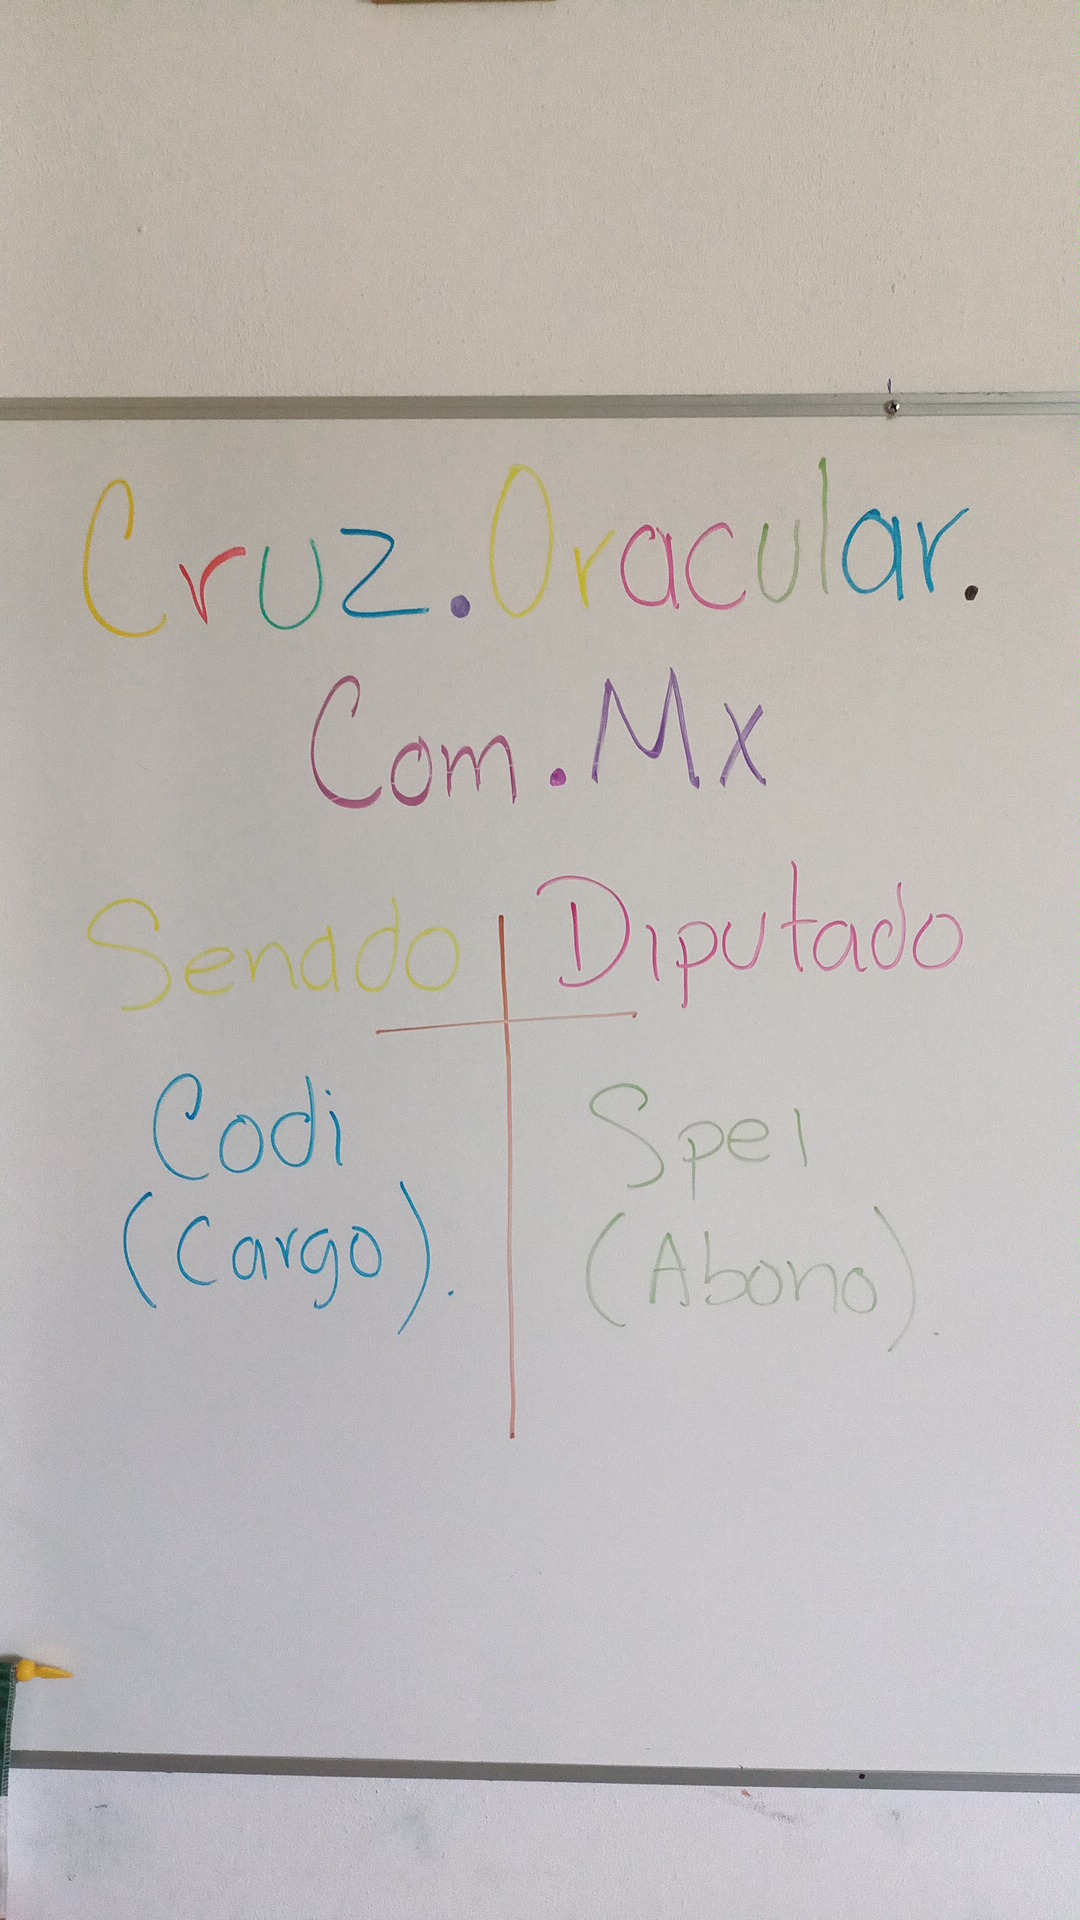 Cruz.Oracular.
Com.Mx
Senado Diputado
Codi Spei
(Cargo). (Abono).